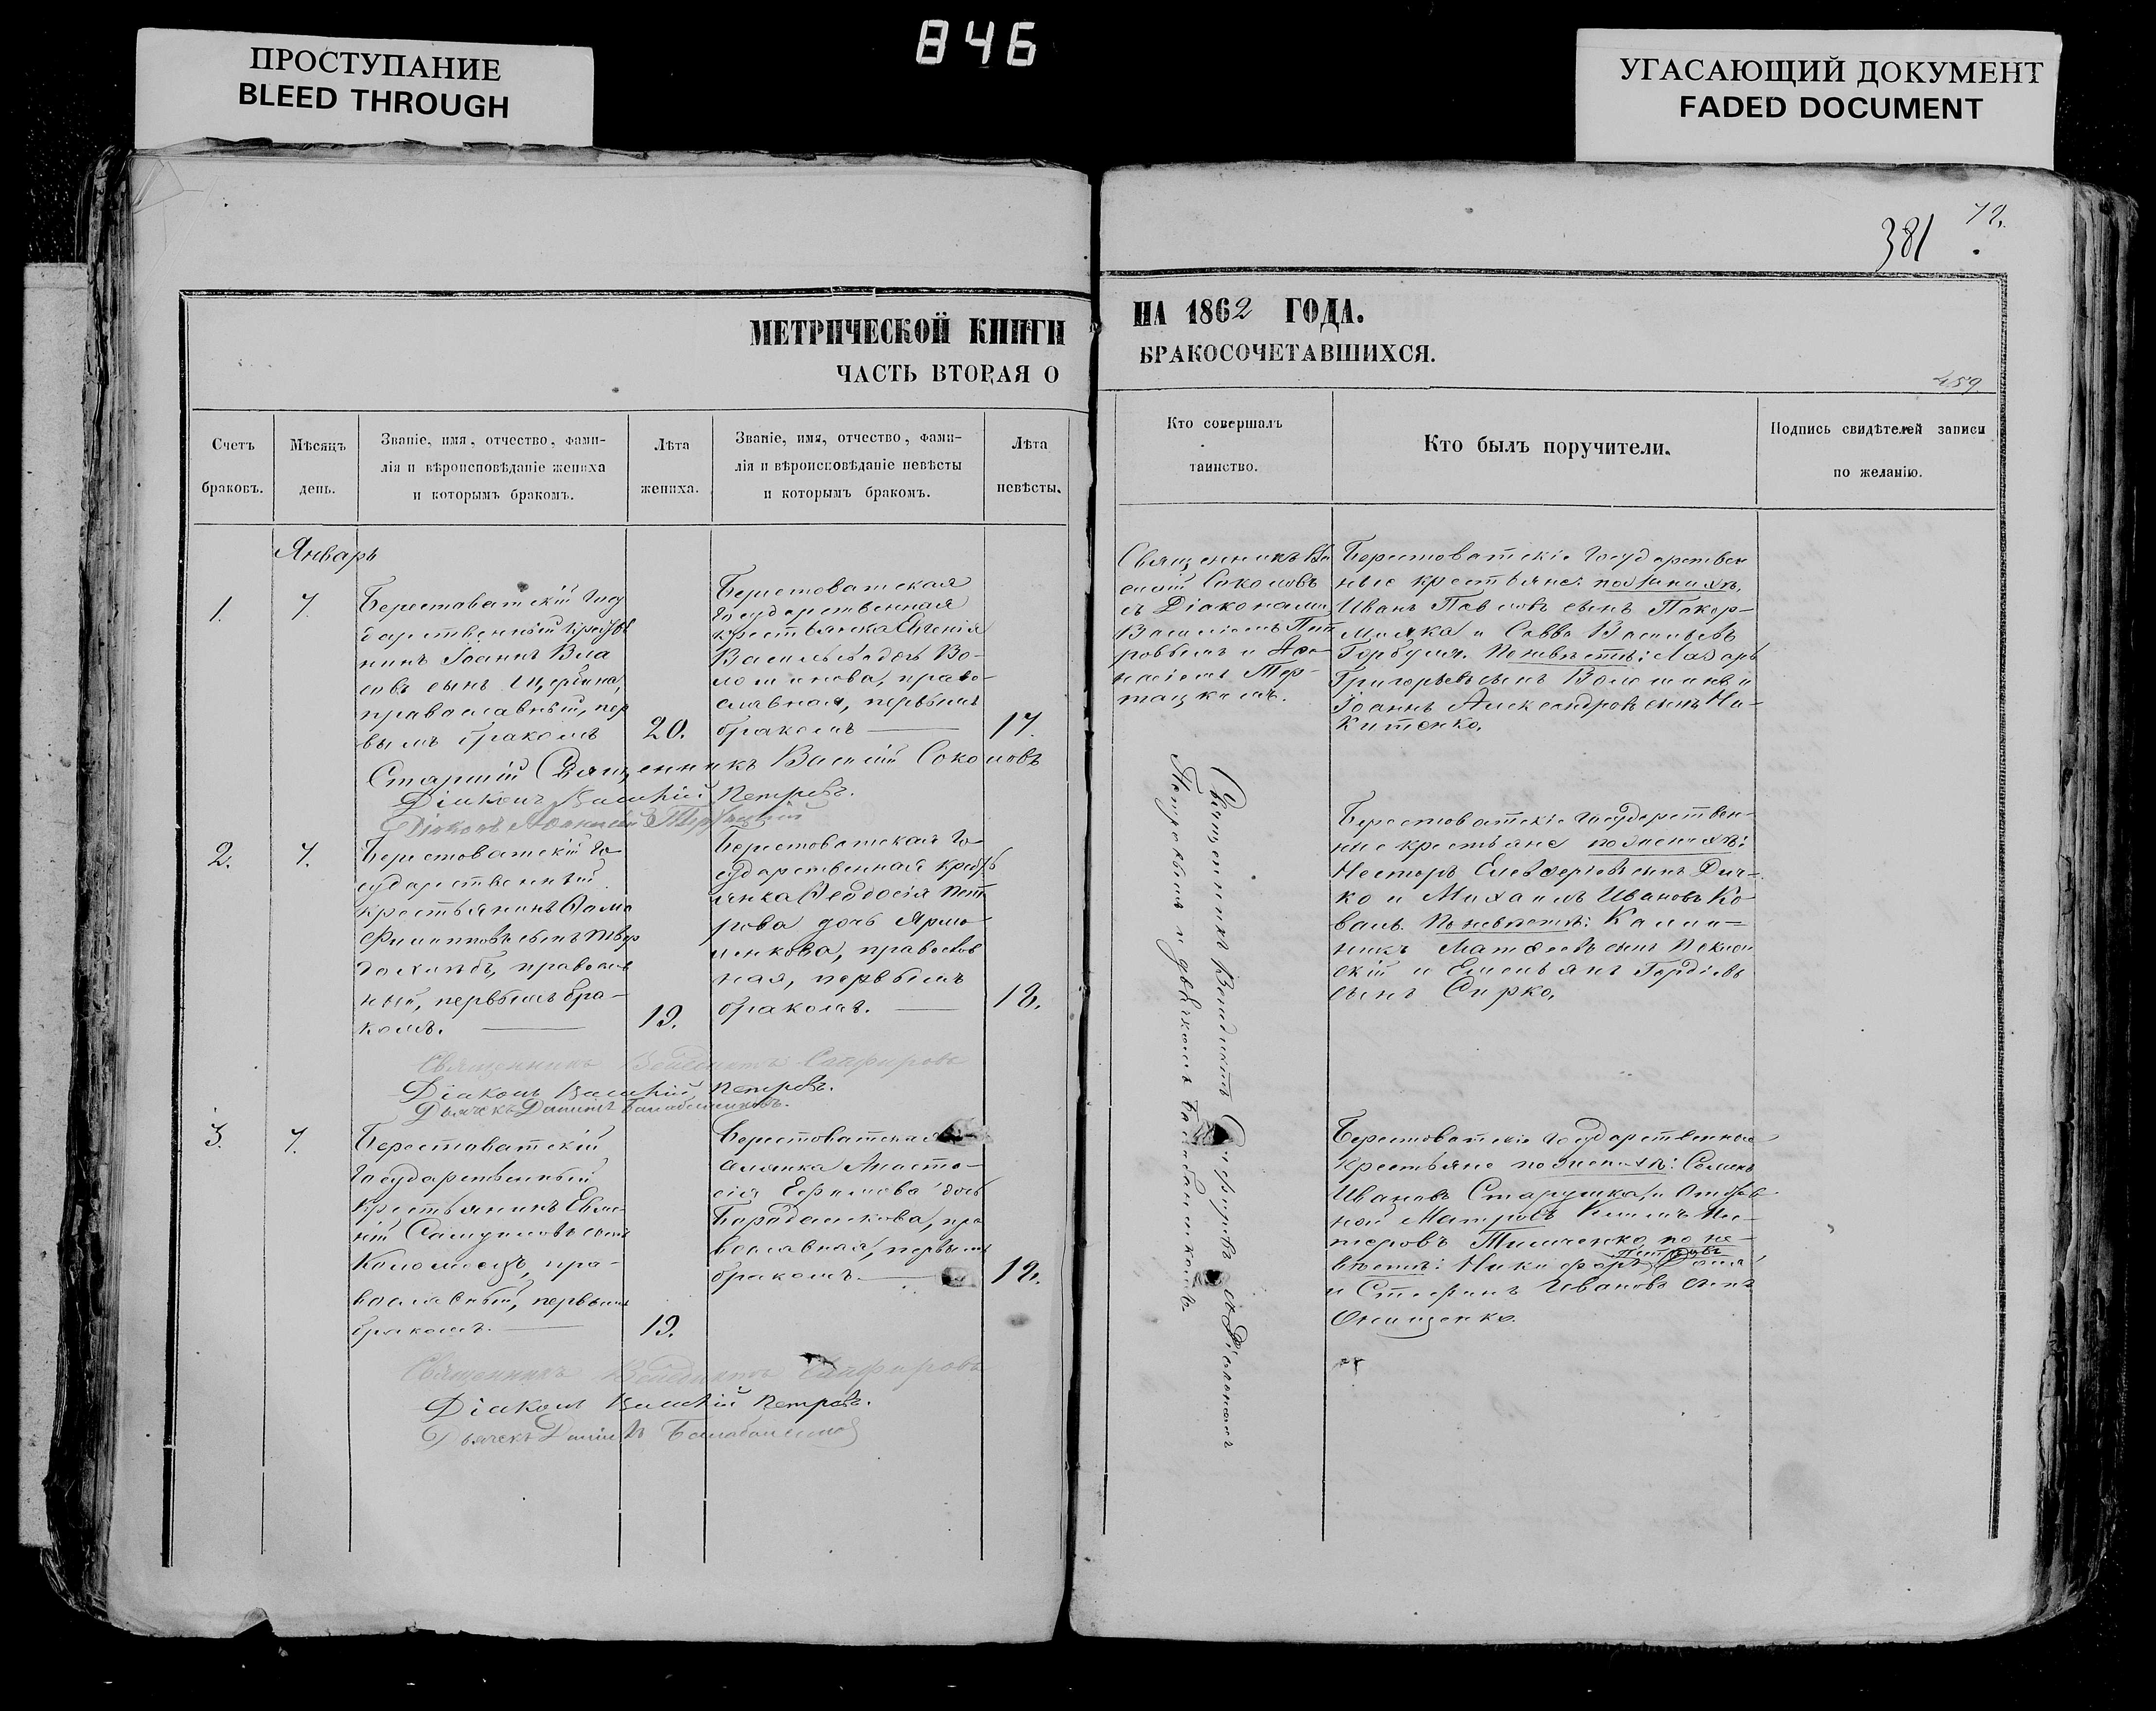 846
ПРОСТУПАНИЕ
BLEED THROUGH
УГАСАЮЩИЙ ДОКУМЕНТ
FADED DOCUMENT
381
72.
МЕТРИЧЕСКОЙ КНИГИ
ЧАСТЬ ВТОРАЯ О
НА 1862 ГОДА.
БРАКОСОЧЕТАВШИХСЯ.
459
Счетъ
браковъ.
Мѣсяцъ
день.
Званіе, имя, отчество, фами-
лія и вѣроисповѣданіе жениха
и которымъ бракомъ.
Лѣта
жениха.
Званіе, имя, отчество, фами-
лія и вѣроисповѣданіе невѣсты
и которымъ бракомъ.
Лѣта
невѣсты.
Кто совершалъ
таинство.
Кто былъ поручители.
Подпись свидѣтелей записи
по желанію.
Январь
1.
7.
Берестоватскій Госу
дарственный крестья
нинъ Іоаннъ Вла
совъ сынъ Щербина,
православный, пер
вымъ бракомъ
20.
Берестоватская
Государственная
крестьянка Евгенія
Васильева дочь Во-
лошинова, право-
славная, первымъ
бракомъ
17.
Священникъ Ва
силій Соколовъ
съ Діаконами
Василіемъ Пет
ровымъ и Аѳа-
насіемъ Тер-
тацкимъ.
Берестоватскіе Государствен
ные крестьяне: по женихѣ,
Иванъ Павловъ сынъ Покор-
миляка и Савва Васильевъ
Горбуля. По невѣстѣ: Лазарь
Григорьевъ сынъ Волошинъ и
Іоаннъ Александровъ сынъ Ни-
китенко.
Старшій Священникъ Василій Соколовъ
Діаконъ Василій Петровъ.
Діаконъ Аѳанасій
2.
7.
Берестоватскій Го-
сударственный
крестьянинъ Ѳома
Филипповъ сынъ Твер
дохлѣбъ, православ
ный, первымъ бра-
комъ.
19.
Берестоватская Го-
сударственная кресть
янка Ѳеодосія Пет
рова дочь Ярмо
ленкова, православ
ная, первымъ
бракомъ.
18.
Священникъ Венедиктъ Сапфировъ съ Діакономъ
Петровымъ и дьячкомъ Балабанниковъ.
Берестоватскіе Государствен-
ные крестьяне по женихѣ:
Несторъ Елевферіевъ сынъ Дич-
ко и Михаилъ Ивановъ Ко-
валь. По невѣстѣ: Калли-
никъ Матѳеевъ сынъ
и Емельянъ Гордіевъ
сынъ Сирко.
Священникъ Венедиктъ Сапфировъ
Діаконъ Василій Петровъ.
Дьячекъ Даніилъ
3.
7.
Берестоватскій
Государственный
крестьянинъ Евге-
ній Самуиловъ сынъ
Коломіецъ, пра-
вославный, первымъ
бракомъ.
19.
Берестоватская
Анаста-
сія Ефимова дочь
Барабашкова, пра
вославная, первымъ
бракомъ.
18.
Берестоватскіе Государственные
крестьяне по женихѣ: Семенъ
Ивановъ Старушка, и Отстав
ной Матросъ Климъ Нес-
теровъ Тимченко, по не-
вѣстѣ: Никифоръ Петровъ
и Стефанъ Ивановъ сынъ
Онищенко.
Священникъ Венедиктъ Сапфировъ
Діаконъ Василій Петровъ.
Дьячекъ Даніилъ